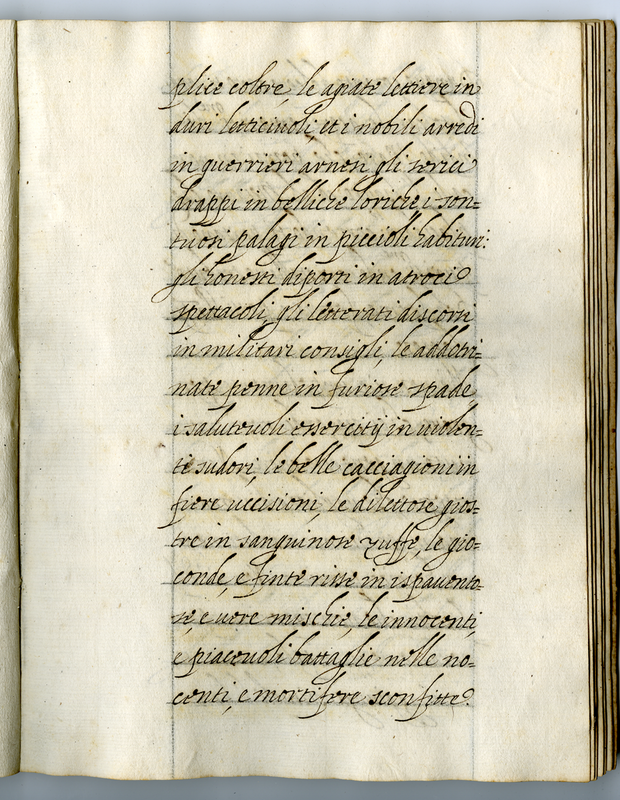 plice coltre, le agiate lettiere in
duri letticiuoli, et i nobili arredi
in guerrieri arnesi gli serici
drappi in belliche loriche, i son=
tuosi palagi in piccioli habituri:
gli honesti diporti in atroci
spettacoli, gli letterati discorsi
in militari consigli, le addotri=
nate penne in furiose spade,
i salutevoli essercitij in violen=
te sudori, le belle cacciagioni in
fiere uccisioni, le dilettose gios=
tre in sanguinose zuffe, le gio=
conde, e finte risse in ispavento=
se, e vere mischie, le innocenti,
e piacevoli battaglie nelle no=
centi, e mortifere sconfitte.